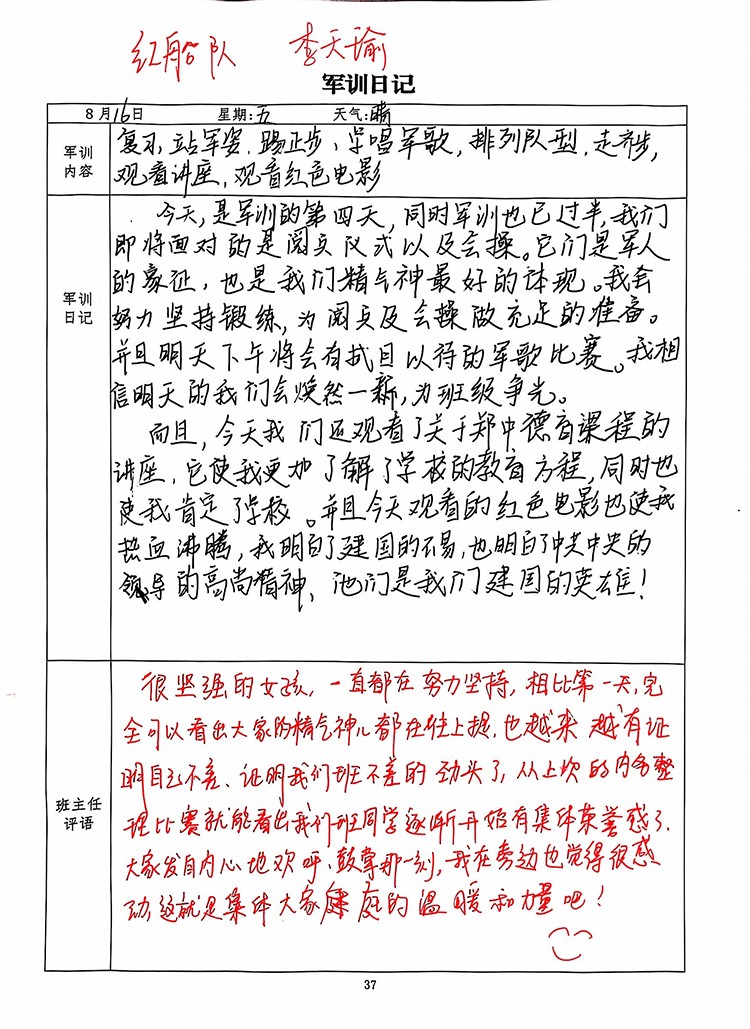 红船队 李天瑜
军训日记
8月16日 星期:五 天气:晴
军训
内容
复习,站军姿,踢正步、学唱军歌,排列队型,走齐步,
观看讲座,观看红色电影
军训
日记
今天,是军训的第四天,同时军训也已过半,我们
即将面对的是阅兵仪式以及会操。它们是军人
的象征,也是我们精气神最好的体现。我会
努力坚持锻练,为阅兵及会操做充足的准备。
并且明天下午将会有拭目以待的军歌比赛。我相
信明天的我们会焕然一新,为班级争光。
而且,今天我们还观看了关于郑中德育课程的
讲座,它使我更加了解了学校的教育方程,同时也
使我肯定了学校。并且今天观看的红色电影也使我
热血沸腾,我明白了建国的不易,也明白了中共中央的
领导的高尚精神,他们是我们建国的英雄!
班主任
评语
很坚强的女孩,一直都在努力坚持,相比第一天,完
全可以看出大家的精气神儿都在往上提,也越来越有证
明自己不差、证明我们班不差的劲头了,从上次的内务整
理比赛就能看出我们班同学逐渐开始有集体荣誉感了,
大家发自内心地欢呼、鼓掌那一刻,我在旁边也觉得很感
动,这就是集体大家庭的温暖和力量吧!
37